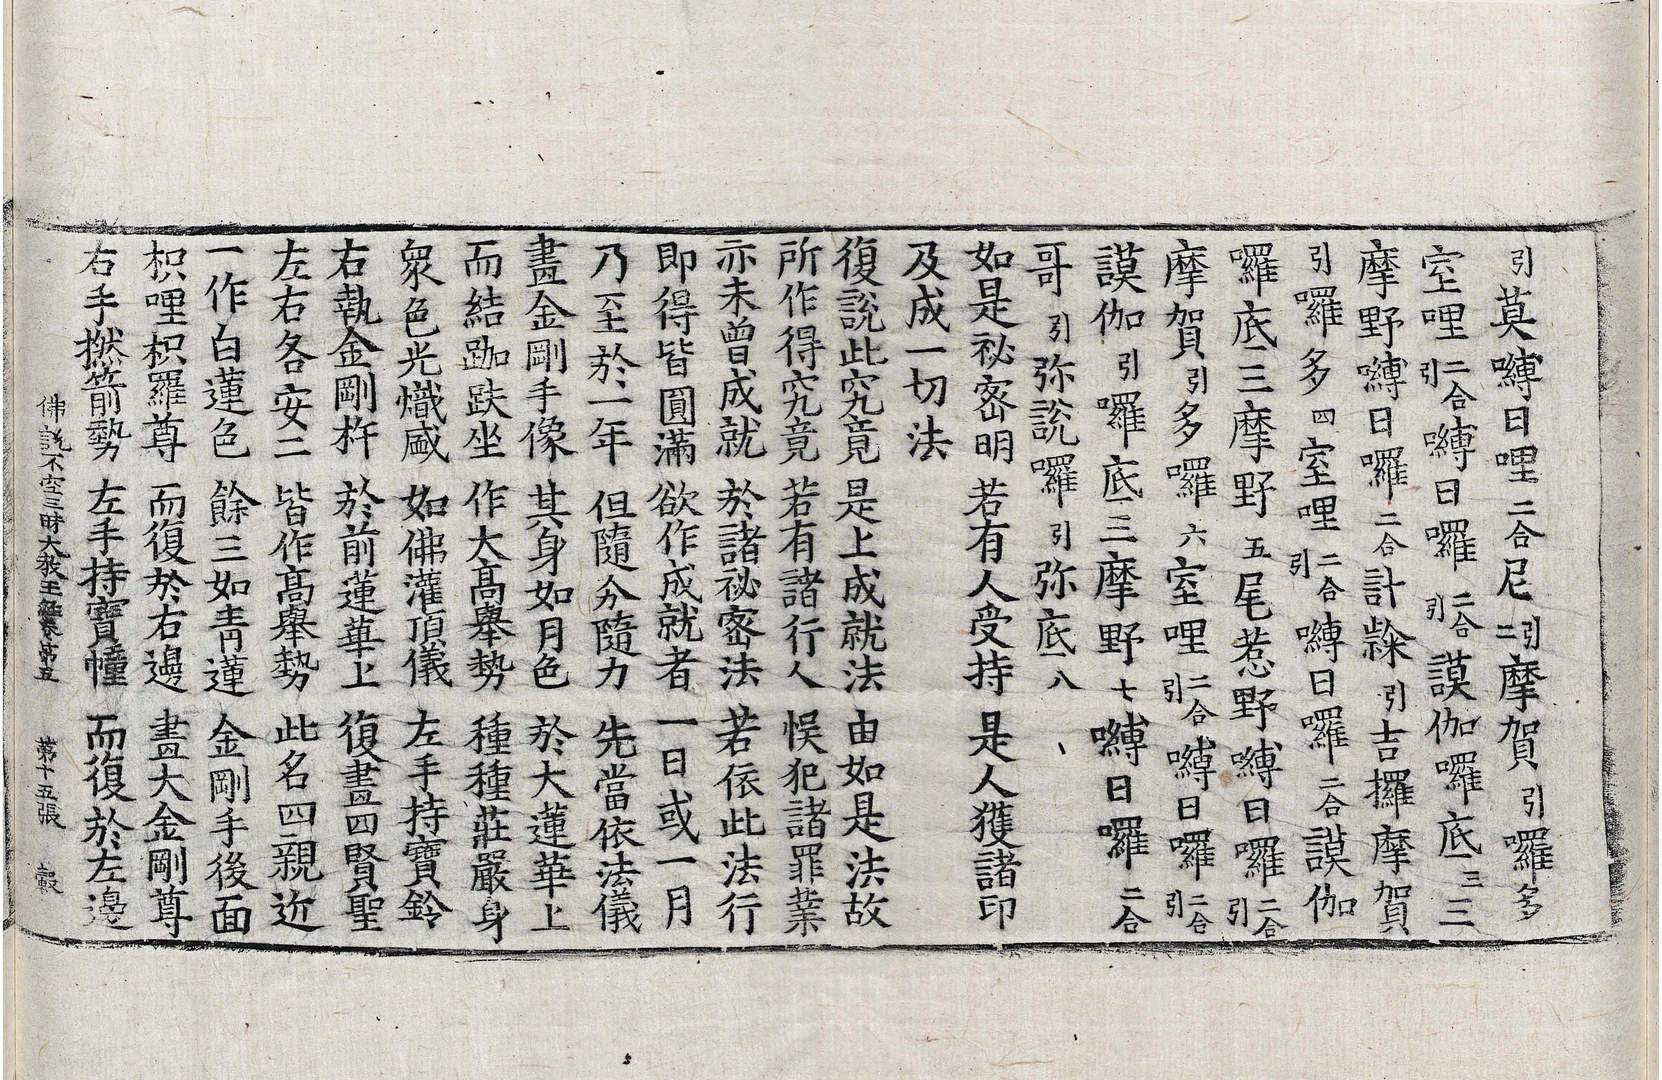 引莫嚩日哩二合尼引二摩賀引囉多
室哩二合引嚩日囉二合引謨伽囉底三三
摩野嚩日囉二合計㸃引吉攞摩賀
引囉多四室哩二合引嚩日囉二合謨伽
囉底三摩野五尾惹野嚩日囉二合引
摩賀引多囉六室哩二合引嚩日囉二合引
謨伽引囉底三摩野七嚩日囉二合
哥引弥說囉引弥底八
如是祕密明　若有人受持　是人獲諸印
及成一切法
復說此究竟　是上成就法　由如是法故
所作得究竟　若有諸行人　悞犯諸罪業
亦未曾成就　於諸祕密法　若依此法行
即得皆圓滿　欲作成就者　一日或一月
乃至於一年　但隨分隨力　先當依法儀
畫金剛手像　其身如月色　於大蓮華上
而結跏趺坐　作大高舉勢　種種莊嚴身
衆色光熾盛　如佛灌頂儀　左手持寶鈴
右執金剛杵　於前蓮華上　復畫四賢聖
左右各安二　皆作高舉勢　此名四親近
一作白蓮色　餘三如青蓮　金剛手後面
枳哩枳羅尊　而復於右邊　畫大金剛尊
右手撚箭勢　左手持寶幢　而復於左邊
佛說不空三昧大教王經卷第五　第十五張　㲄